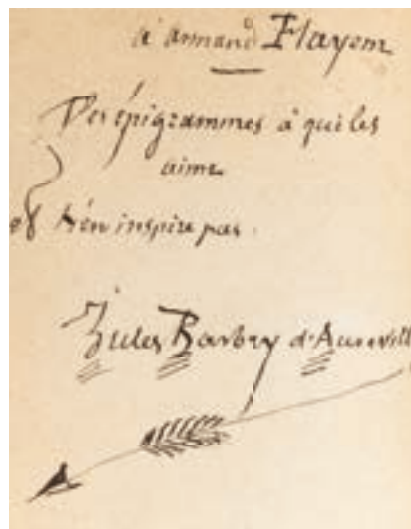 à Armand Hayem
Des épigrammes à qui les
aime
et n'en inspire pas.
Jules Barbey d'Aurevill